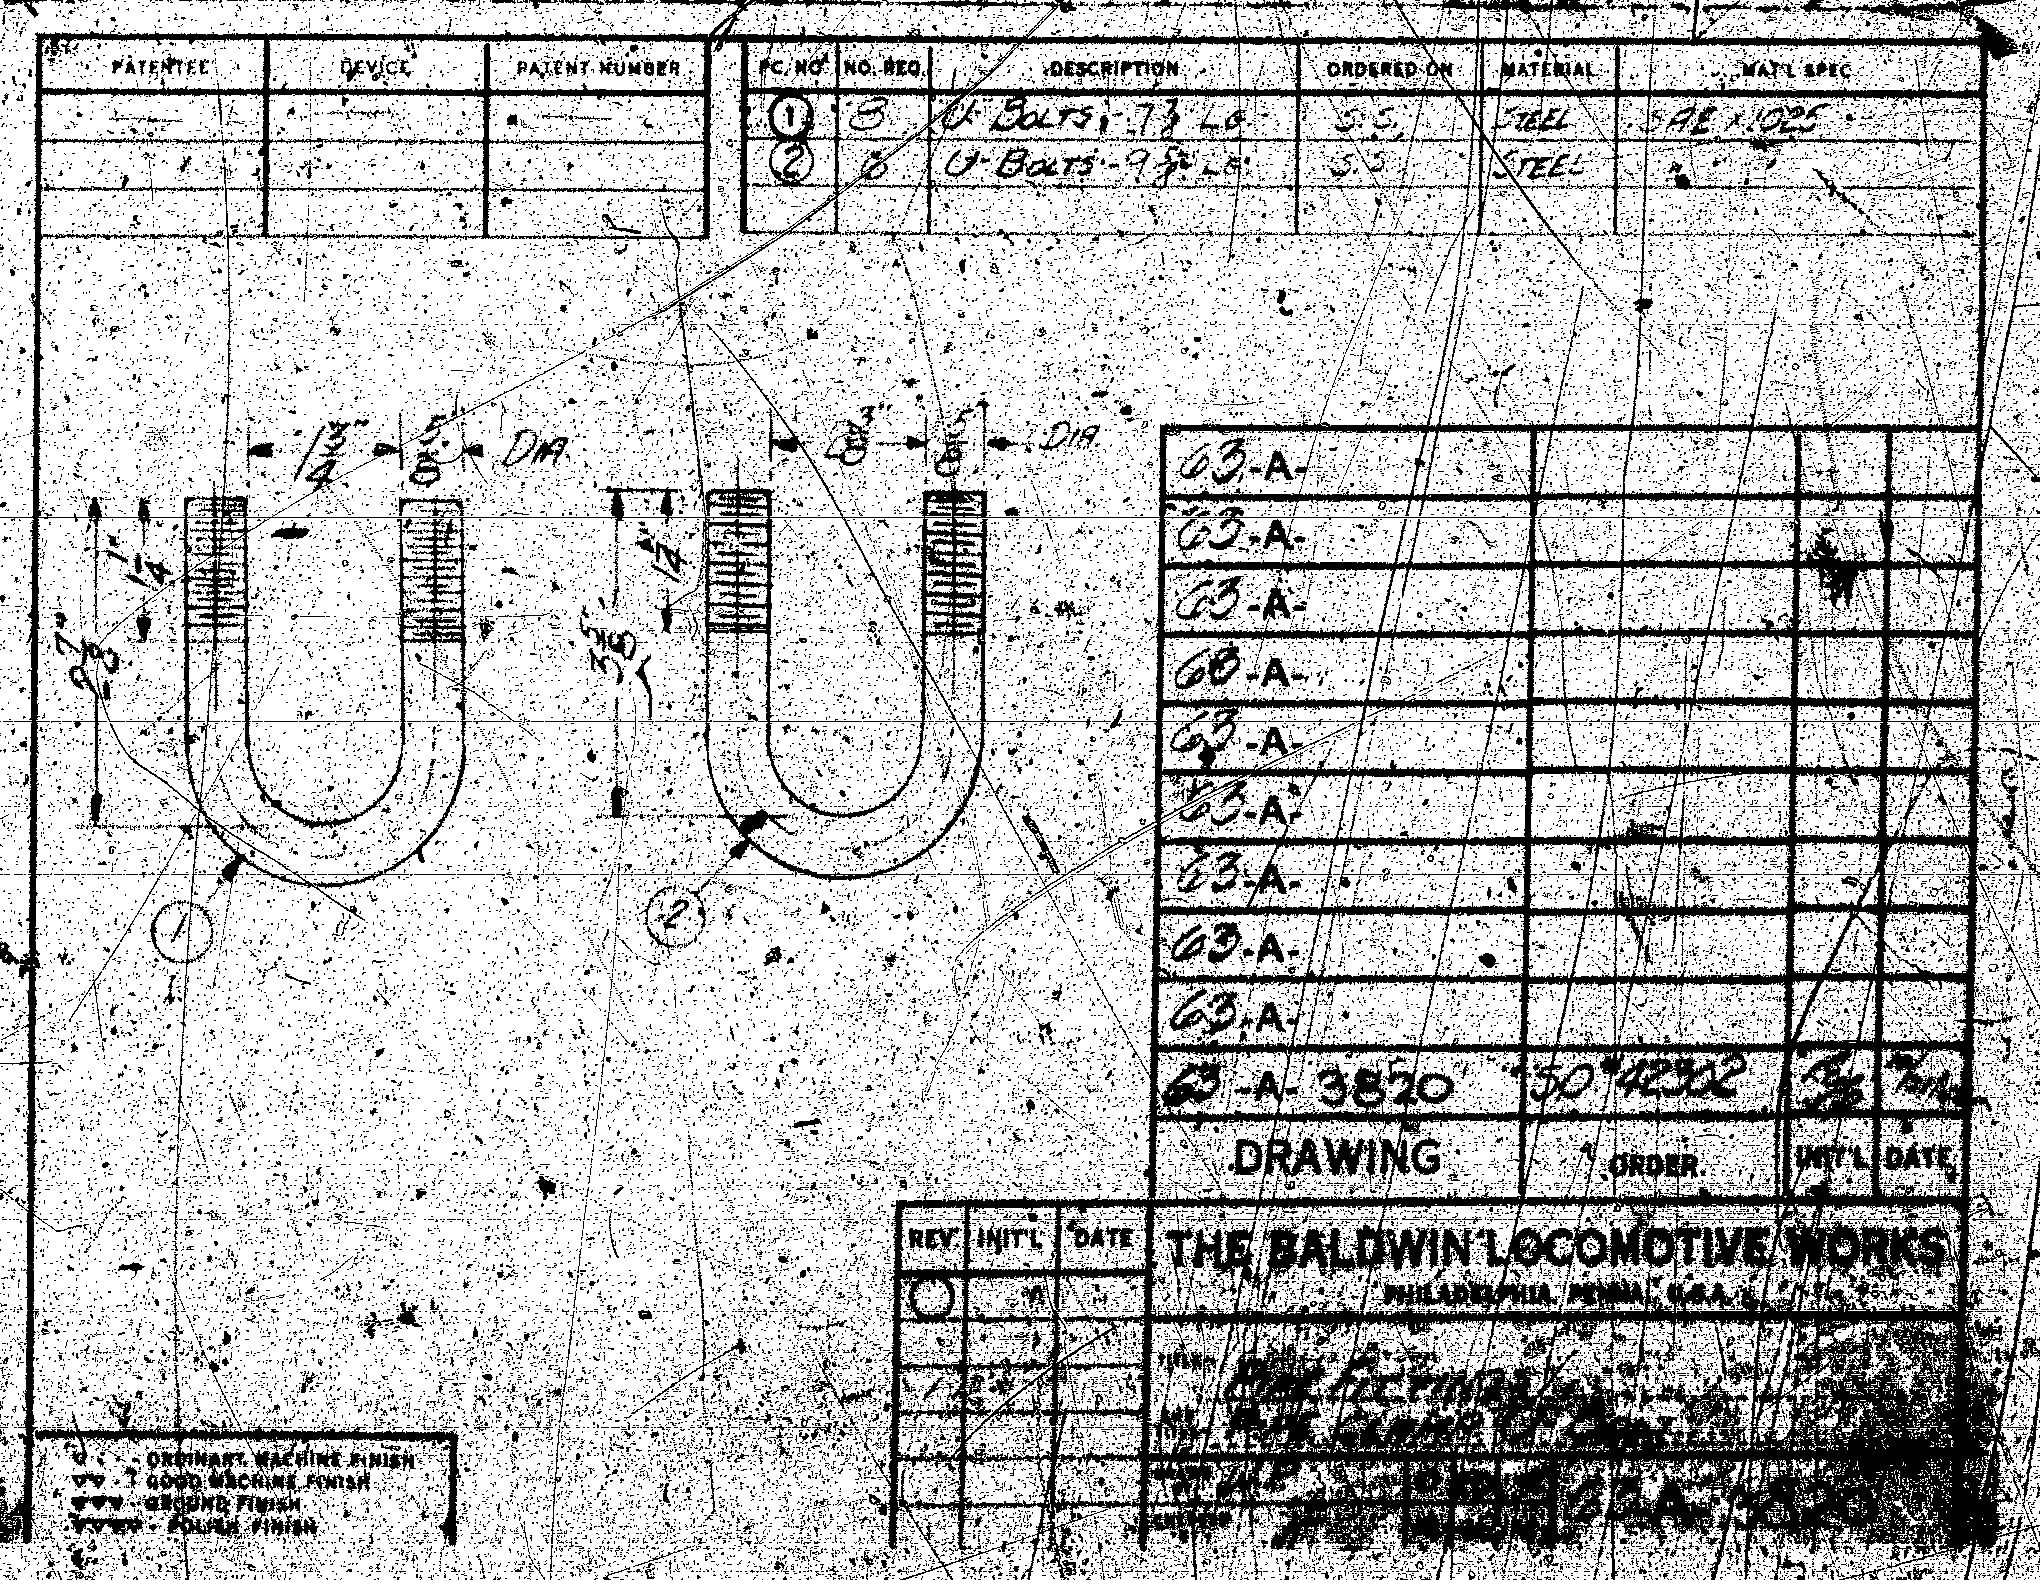 PATENTEE DEVICE PATENT NUMBER
PC. NO. NO. REQ. DESCRIPTION ORDERED ON MATERIAL MAT'L SPEC
1 8 U-BOLTS - LG S.S. STEEL SAE X1025
2 8 U-BOLTS - LG S.S. STEEL
1 3/4" 5/8 DIA
3" 5" DIA
1 1/4"
2 7/8"
1 1/4"
3 5/8"
1
2
63-A-
63-A-
63-A-
63-A-
63-A-
63-A-
63-A-
63-A-
63-A-
63-A-3820 SO #42302
DRAWING ORDER INIT'L DATE
REV INIT'L DATE
THE BALDWIN LOCOMOTIVE WORKS
PHILADELPHIA, PENNA., U.S.A.
TITLE-
PIPE FITTINGS
PIPE CLAMP
63-A-3820
ORDINARY MACHINE FINISH
GOOD MACHINE FINISH
GROUND FINISH
POLISH FINISH